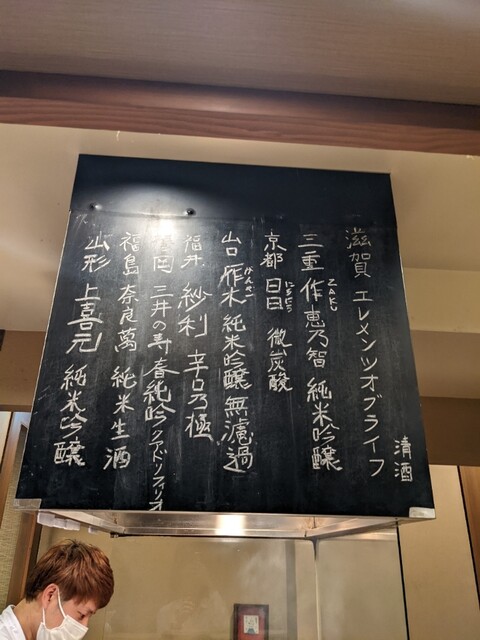 清酒
滋賀 エレメンツオブライフ
三重 作 ZAKU 恵乃智 純米吟醸
京都 日日 にちにち 微炭酸
山口 雁木 がんぎ 純米吟醸 無濾過
福井 紗利 辛口乃極
福岡 三井の寿 春純吟 クアドリフォリオ
福島 奈良萬 純米生酒
山形 上喜元 純米吟醸